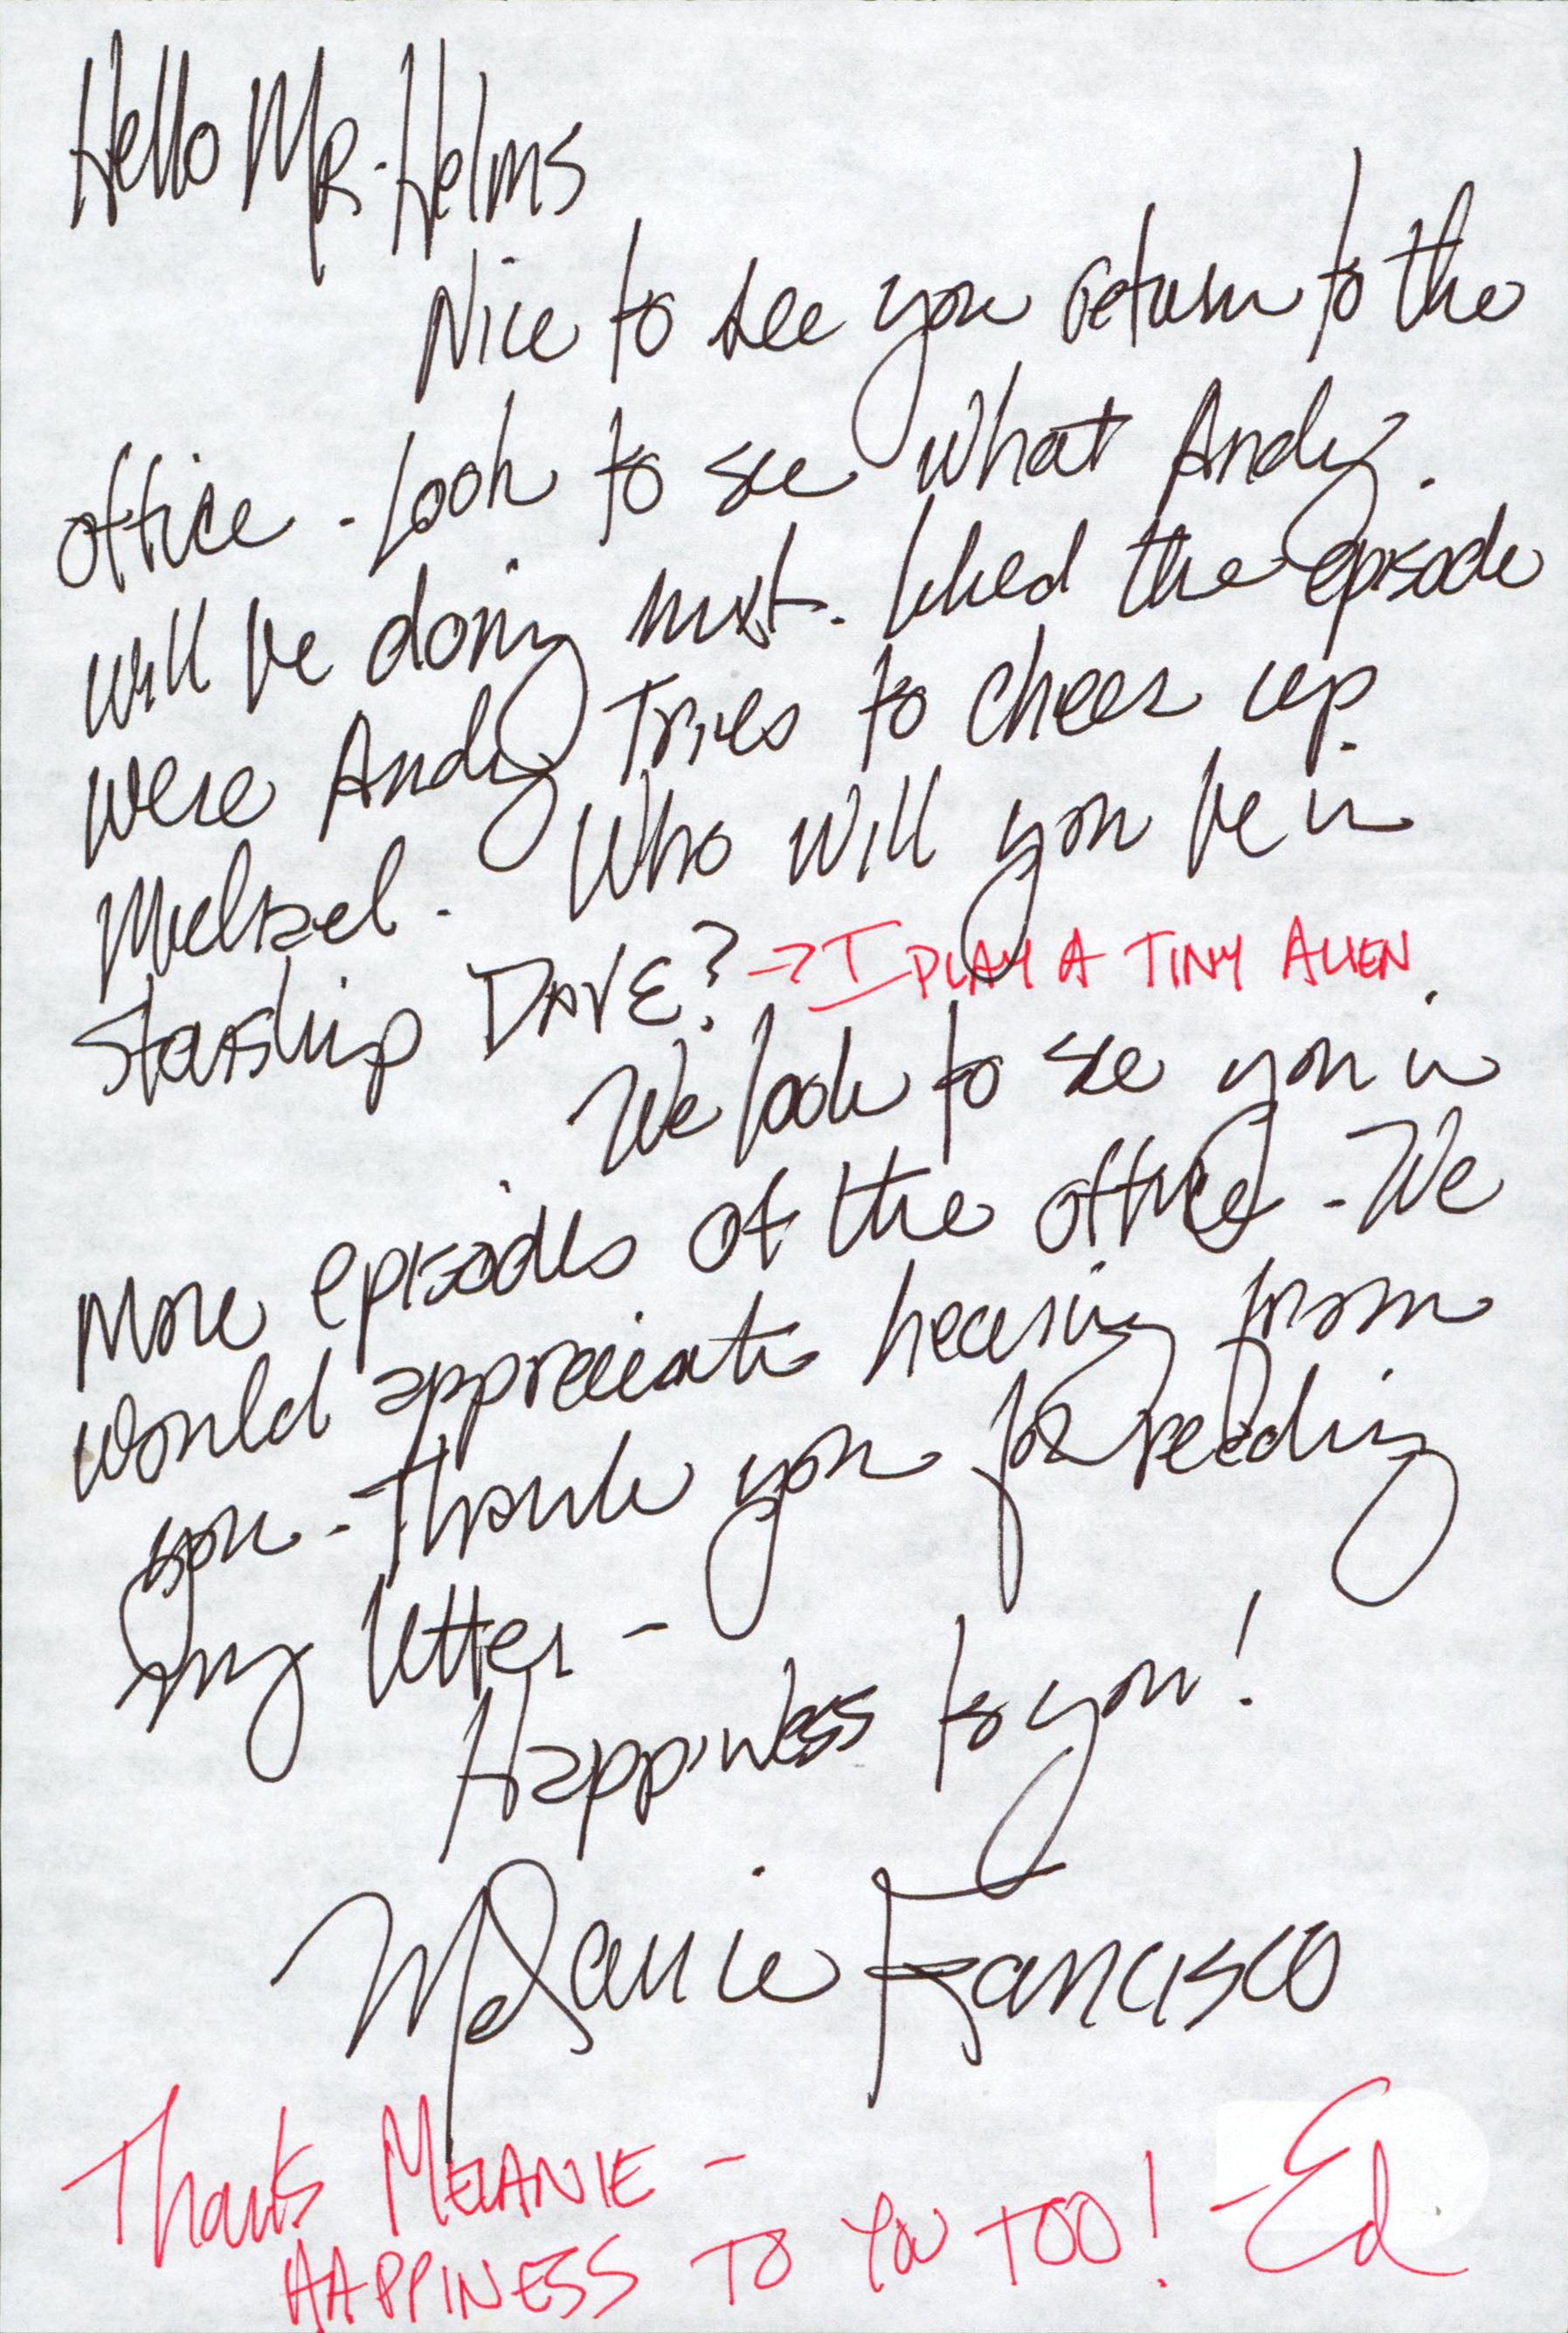 Hello MR. Helms
Nice to see you return to the
office - Look to see what Andy
will be doing next. liked the episode
were Andy Tries to cheer up
Michael. Who will you be in
Starship DAVE? → I PLAY A TINY ALIEN.
We look to see you in
more episodes of the office - We
would appreciate hearing from
you - Thank you for reading
my letter -
Happiness to you!
Melanie Francisco
Thanks MELANIE -
HAPPINESS TO YOU TOO! - Ed